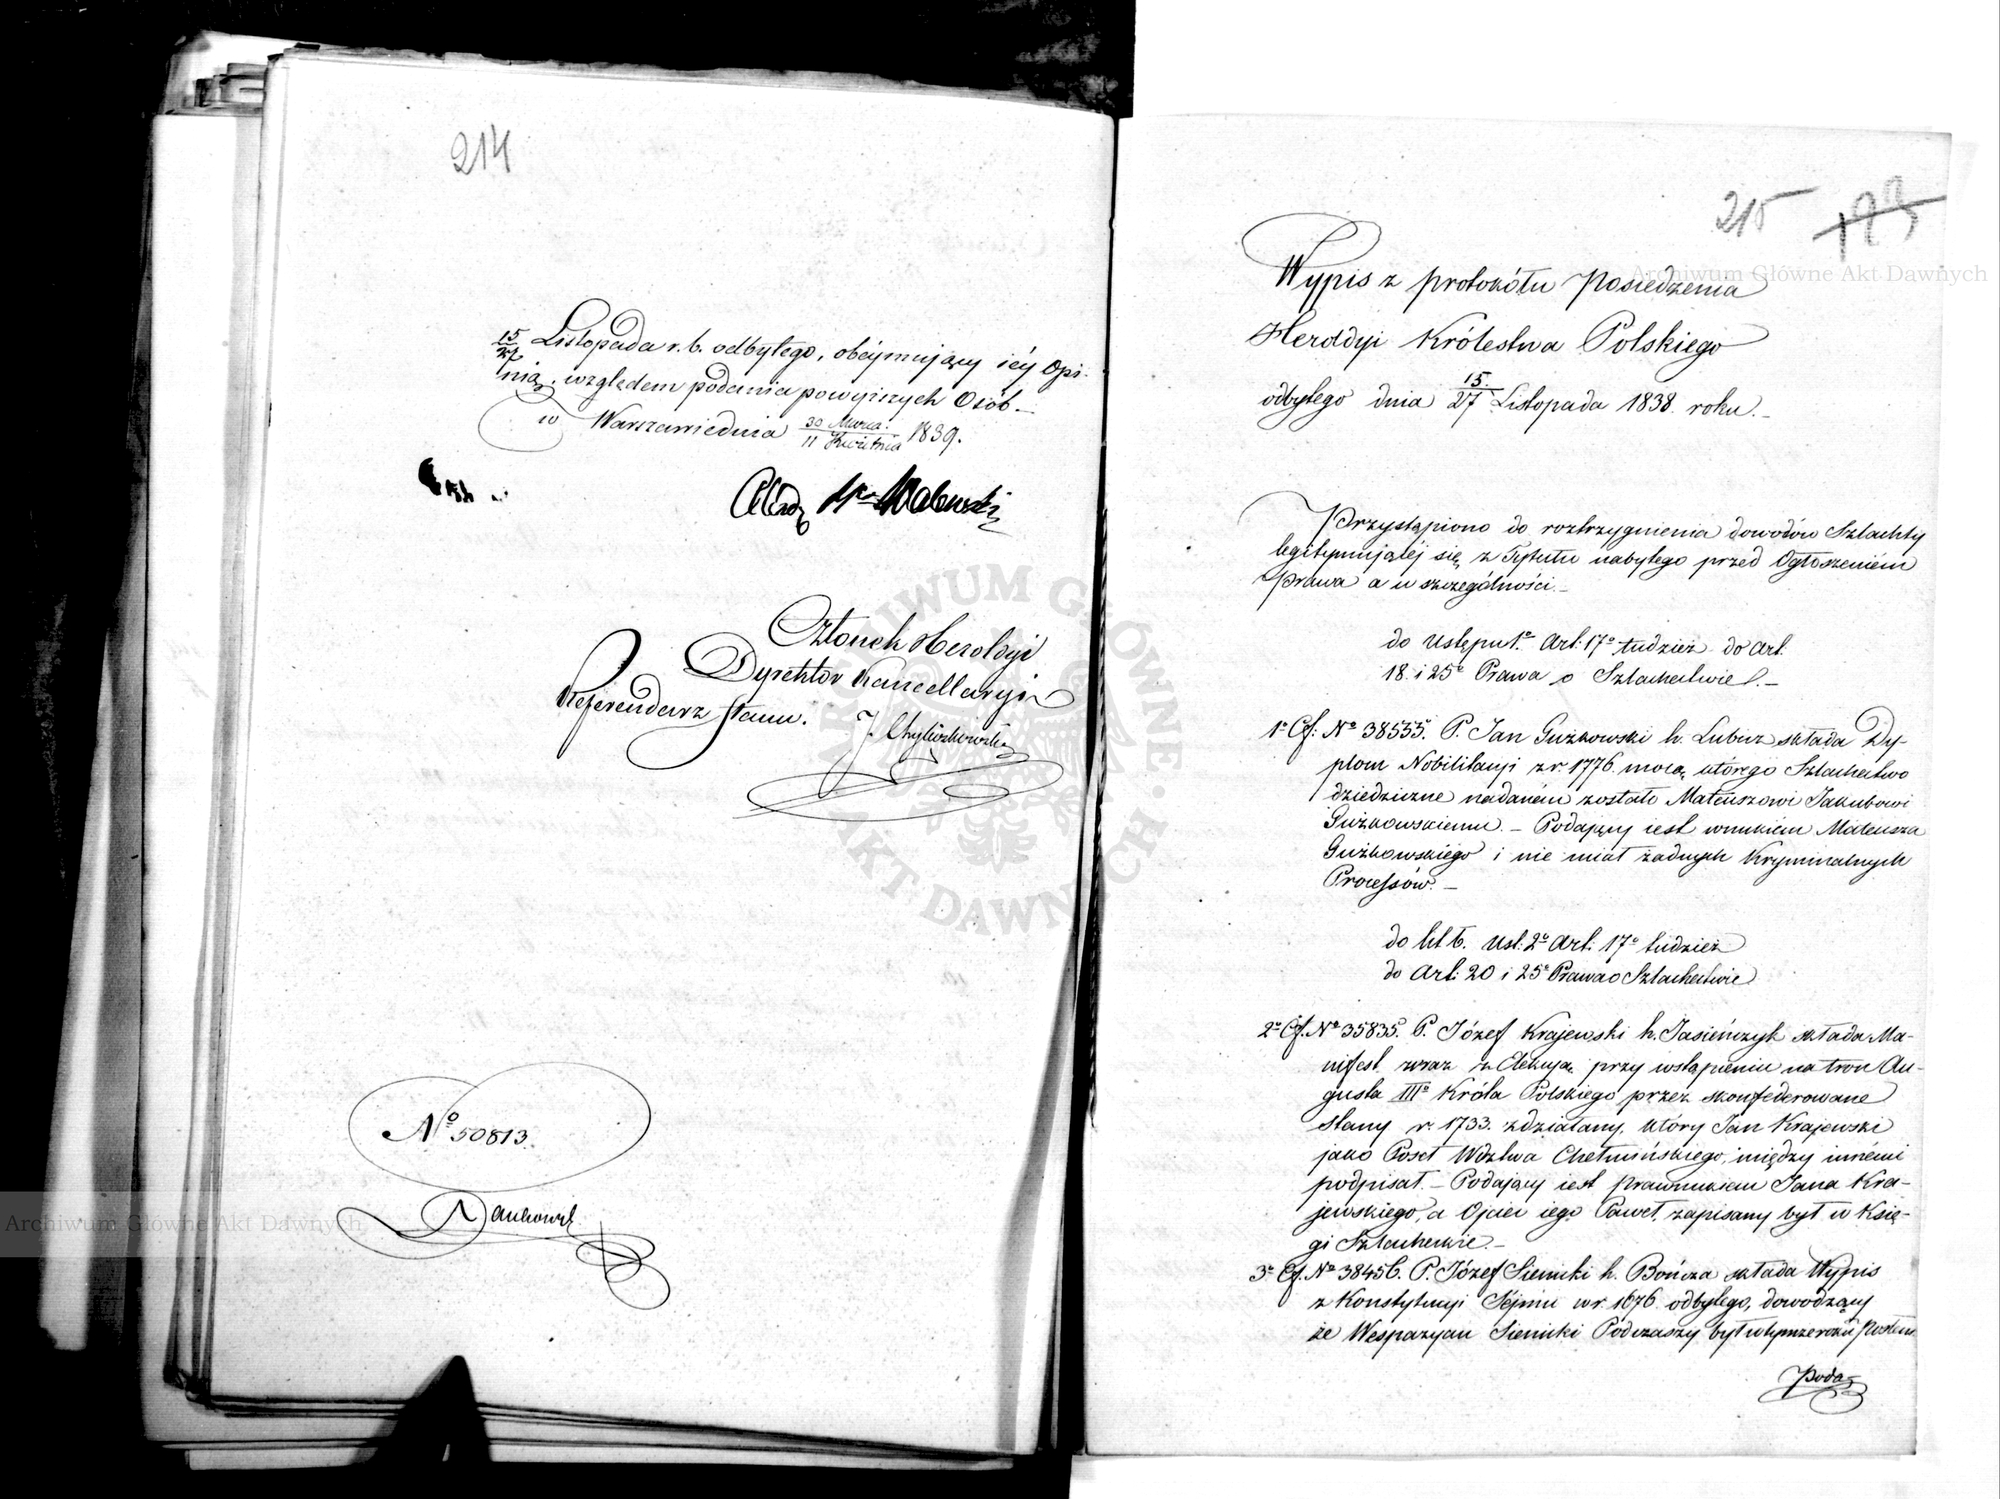 214
15/27 Listopada r. b. odbytego, obéymujący iéy Opi-
nią, względem podania powyższych Osób.-
w Warszawie dnia 30 Marca/11 Kwietnia 1839.
Członek Heroldyi
Dyrektor Kancellaryi
Referendarz Stanu.
No 50813.
215 173
Wypis z protokółu Posiedzenia
Heroldyi Królestwa Polskiego
odbytego dnia 15/27 Listopada 1838 roku.-
Przystąpiono do roztrzygnienia dowodów Szlachty
legitymującéj się z Tytułu nabytego przed Ogłoszeniém
Prawa a w szczególności.-
do Ustępu 1o Art: 17o tudzież do Art.
18. i 25o Prawa o Szlachectwie.-
1o Cf: No 38535. P. Jan Guzkowski h. Lubicz składa Dy-
plom Nobilitacyi z r. 1776. mocą którego Szlachectwo
dziedziczne nadaném zostało Mateuszowi Jakubowi
Guzkowskiemu.- Podający iest wnukiem Mateusza
Guzkowskiego i nie miał żadnych Kryminalnych
Processów.-
do lit b. Ust: 2o Art: 17o tudzież
do Art: 20 i 25o Prawa o Szlachectwie
2o Cf. No 35835. P. Józef Krajewski h. Jasieńczyk składa Ma-
nifest wraz z Elekcyą przy wstąpieniu na tron Au-
gusta IIIo Króla Polskiego przez skonfederowane
Stany r. 1733. zdziałany, który Jan Krajewski
jako Poseł Wdztwa Chełmińskiego, między innémi
podpisał.- Podający iest Prawnukiem Jana Kra-
jewskiego, a Ojciec iego Paweł, zapisany był w Księ-
gi Szlacheckie.-
3o Cf. No 38456. P. Józef Sienicki h. Bończa składa Wypis
z Konstytucyi Sejmu w r. 1676. odbytego, dowodzący
że Wespazyan Sienicki Podczaszy był w tymże roku Posłem
Poda-
Archiwum Główne Akt Dawnych
Archiwum Główne Akt Dawnych
ARCHIWUM GŁÓWNE · AKT DAWNYCH ·